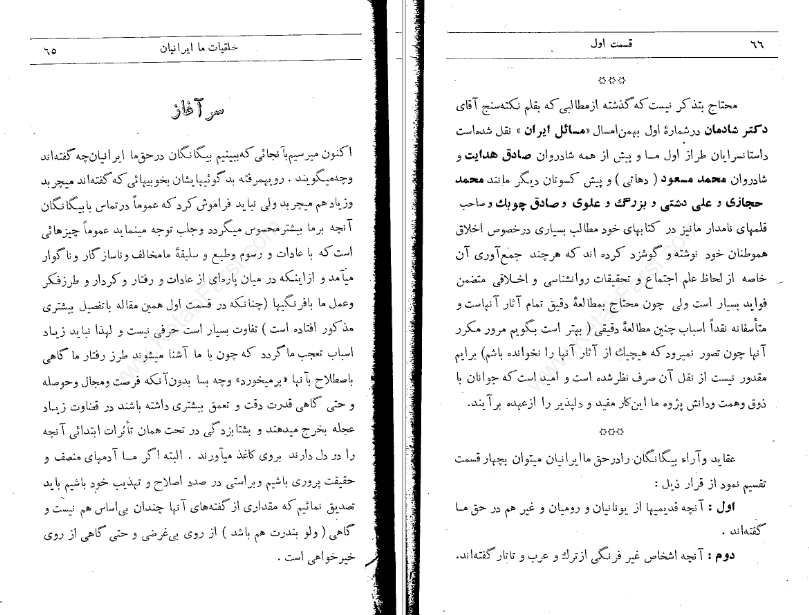 خلقیات ما ایرانیان
٦٥
سر آغاز
اکنون میرسیم بآنجائی که ببینیم بیگانگان درحق ما ایرانیان چه گفته‌اند
وچه میگویند . رویهمرفته بدگوئیهایشان بخوبیهائی که گفته‌اند میچربد
وزیادهم میچربد ولی نباید فراموش کرد که عموماً درتماس با بیگانگان
آنچه برما بیشتر محسوس میگردد وجلب توجه مینماید عموماً چیزهائی
است که با عادات و رسوم وطبع و سلیقهٔ ما مخالف وناسازگار وناگوار
میآمد و ازاینکه در میان پاره‌ای از عادات و رفتار و کردار و طرزفکر
وعمل ما بافرنگیها (چنانکه در قسمت اول همین مقاله باتفصیل بیشتری
مذکور افتاده است) تفاوت بسیار است حرفی نیست و لهذا نباید زیاد
اسباب تعجب ما گردد که چون با ما آشنا میشوند طرز رفتار ما گاهی
باصطلاح بآنها «برمیخورد» وچه بسا بدون‌آنکه فرصت ومجال وحوصله
و حتی گاهی قدرت دقت و تعمق بیشتری داشته باشند در قضاوت زیاد
عجله بخرج میدهند و بشتابزدگی در تحت همان تأثرات ابتدائی آنچه
را در دل دارند بروی کاغذ میآورند . البته اگر ما آدمهای منصف و
حقیقت پروری باشیم وبراستی در صدد اصلاح و تهذیب خود باشیم باید
تصدیق نمائیم که مقداری از گفته‌های آنها چندان بی‌اساس هم نیست و
گاهی ( ولو بندرت هم باشد ) از روی بی‌غرضی و حتی گاهی از روی
خیرخواهی است .
قسمت اول
٦٦
***
محتاج بتذکر نیست که گذشته از مطالبی که بقلم نکته‌سنج آقای
دکتر شادمان درشمارهٔ اول بهمن‌امسال «مسائل ایران» نقل شده‌است
داستانسرایان طراز اول ما و پیش از همه شادروان صادق هدایت و
شادروان محمد مسعود ( دهاتی ) و پیش کسوتان دیگر مانند محمد
حجازی و علی دشتی و بزرگ و علوی و صادق چوبك و صاحب
قلمهای نامدار مانیز در کتابهای خود مطالب بسیاری درخصوص اخلاق
هموطنان خود نوشته و گوشزد کرده اند که هرچند جمع‌آوری آن
خاصه از لحاظ علم اجتماع و تحقیقات روانشناسی و اخلاقی متضمن
فواید بسیار است ولی چون محتاج بمطالعهٔ دقیق تمام آثار آنهاست و
متأسفانه نقداً اسباب چنین مطالعهٔ دقیقی ( بهتر است بگویم مرور مکرر
آنها چون تصور نمیرود که هیچیک از آثار آنها را نخوانده باشم) برایم
مقدور نیست از نقل آن صرف نظر شده است و امید است که جوانان با
ذوق وهمت ودانش پژوه ما این کار مفید و دلپذیر را ازعهده برآیند.
***
عقاید و آراء بیگانگان را درحق ما ایرانیان میتوان بچهار قسمت
تقسیم نمود از قرار ذیل :
اول : آنچه قدیمیها از یونانیان و رومیان و غیر هم در حق ما
گفته‌اند .
دوم : آنچه اشخاص غیر فرنگی از ترك و عرب و تاتار گفته‌اند.